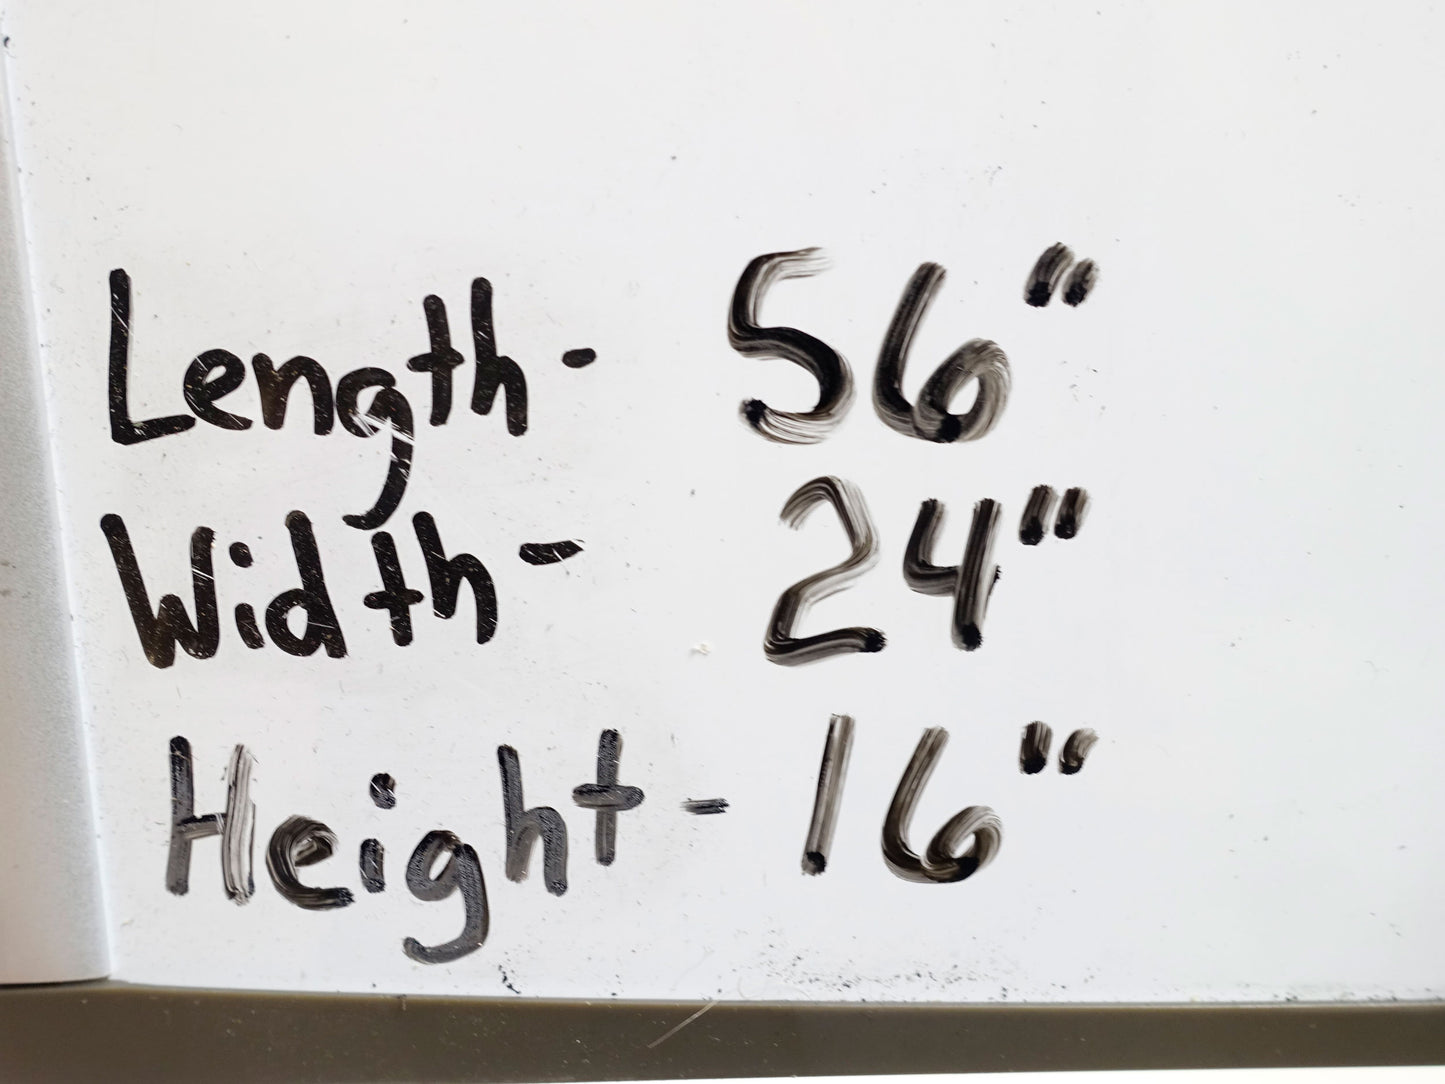 Length- 56"
Width- 24"
Height- 16"